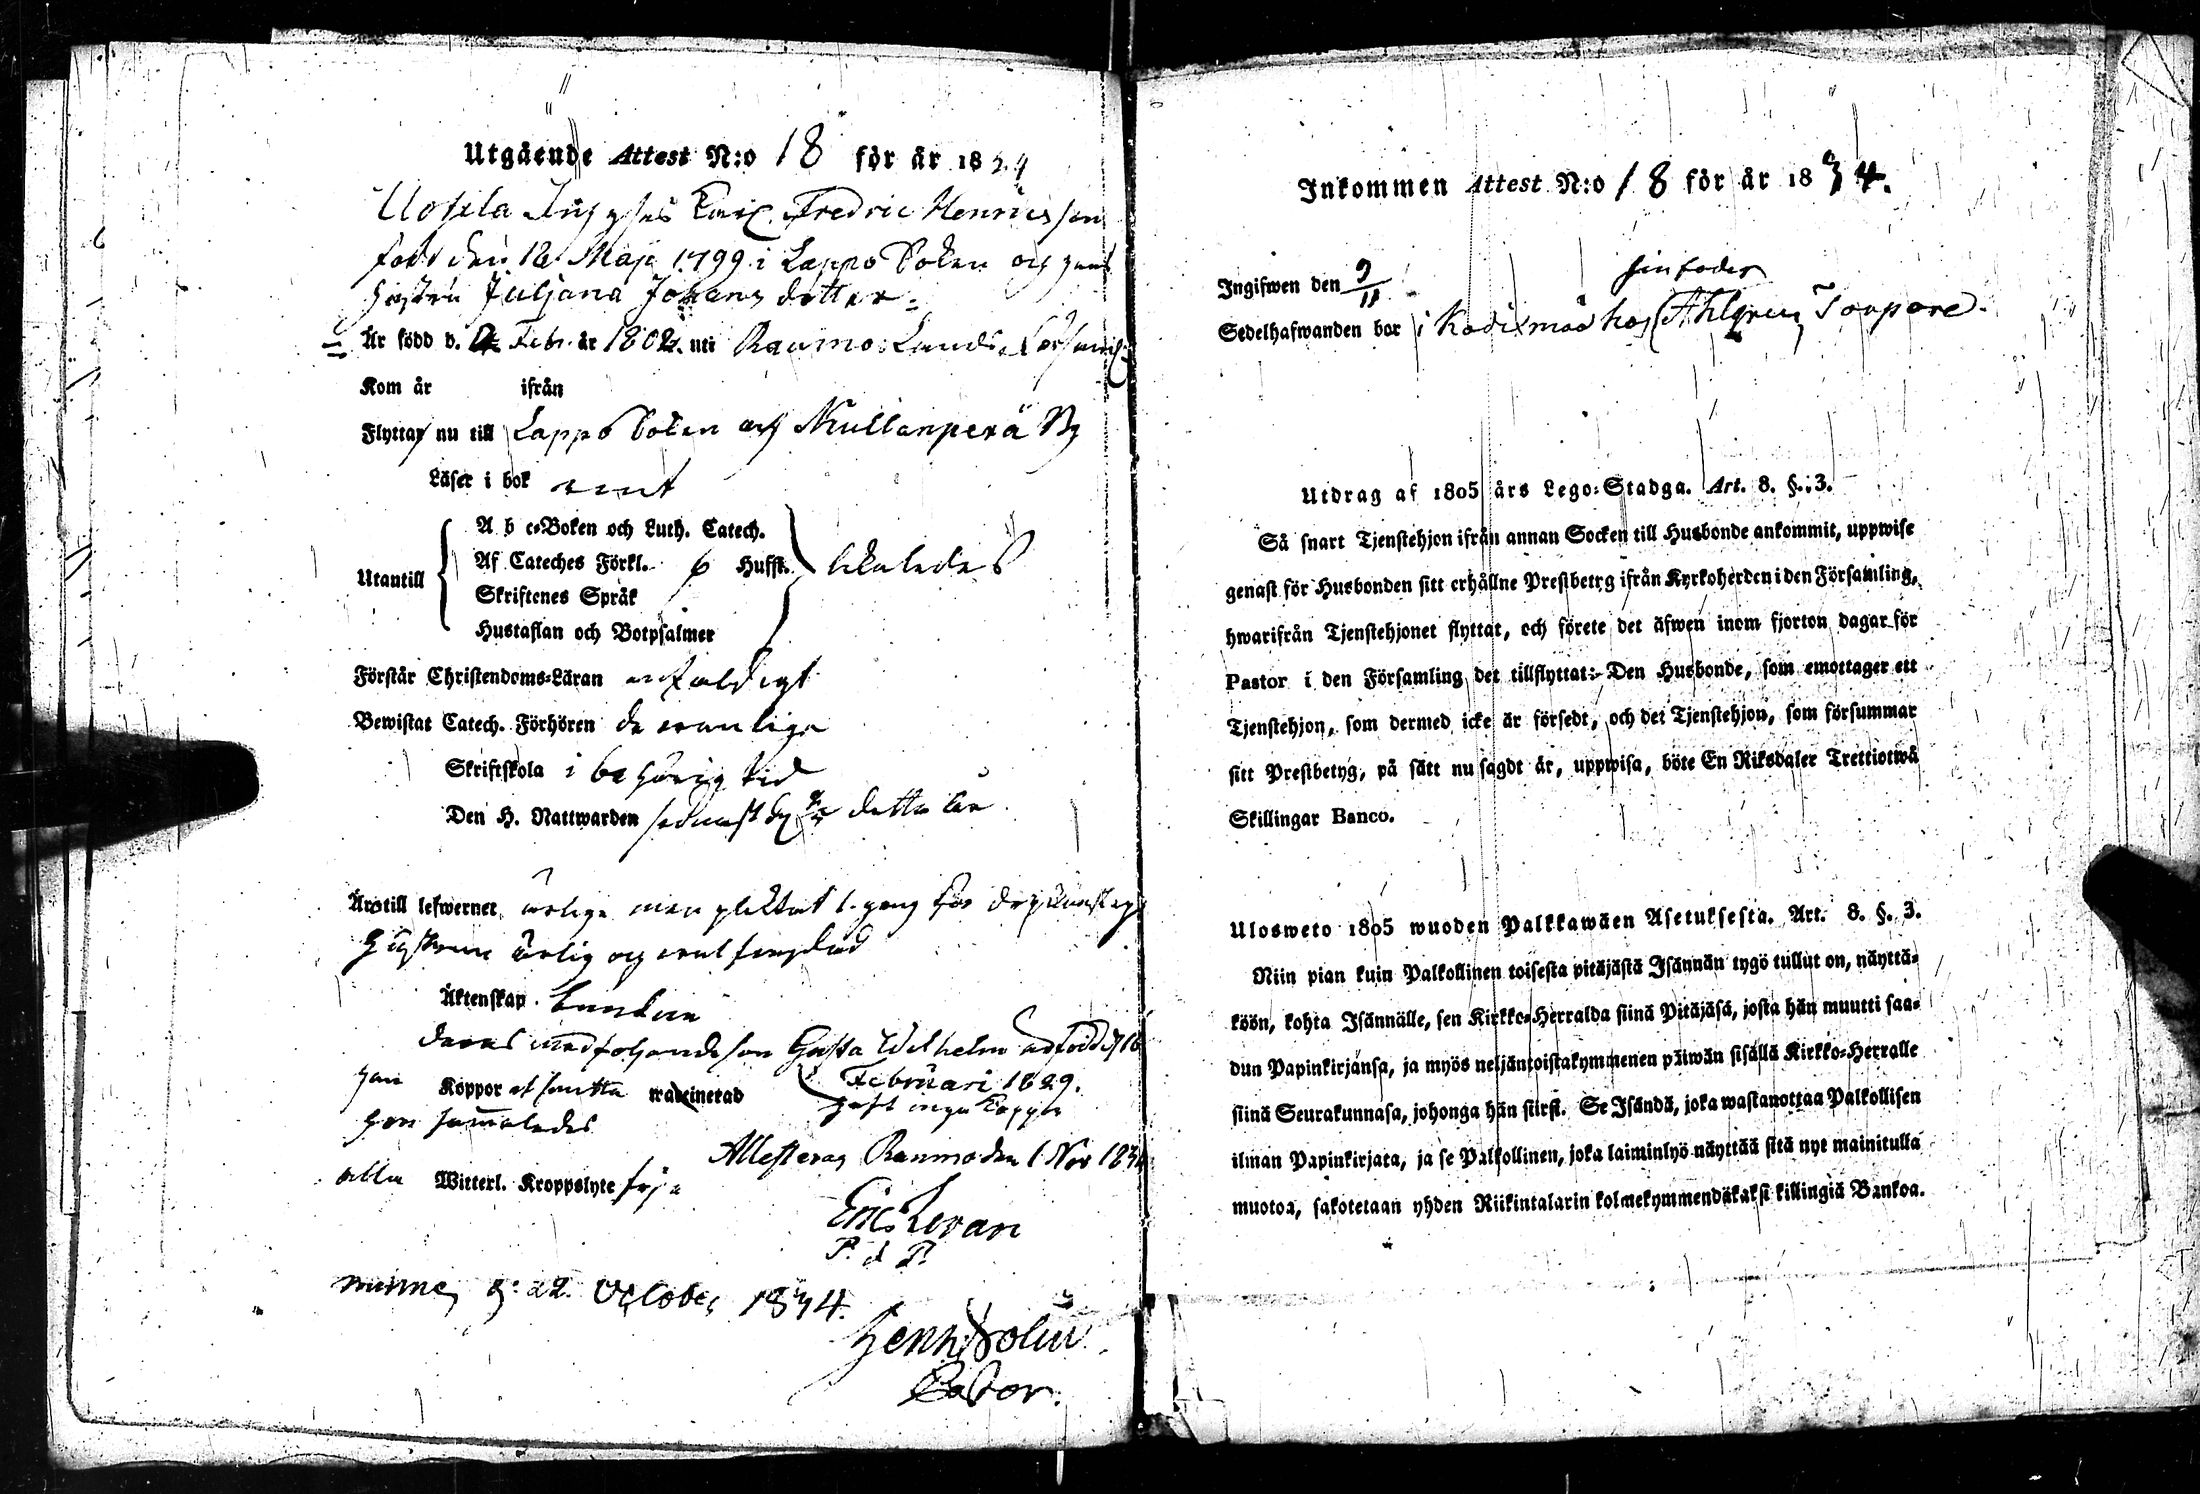 Utgående Attest N:o 18 för år 1834
Fredric Henricsson
född den 12 Maji 1799 i Lappo Soken och hans
hustru Juljana Johans dotter
Är född d. Febr. år 1802 uti Raumo Lands
Kom år ifrån
Flyttar nu till Lappo Soken och Kullanperä By
Läser i bok rent
Utantill
A b c-Boken och Luth. Catech.
Af Cateches Förkl. 6 Hufst. likaledes
Skriftenes Språk
Hustaflan och Botpsalmer
Förstår Christendoms-Läran enfaldigt
Bewistat Catech. Förhören de vanliga
Skriftskola i behörig tid
Den H. Nattwarden sednast d. detta år
Års till lefwernet ärlige men pliktat 1. gång för
Hustrun ärlig och
Äktenskap. bunden
deras medföljande son Gusta Wilhelm född d 16
Februari 1829.
han Koppor haft waccinerad haft inga koppor
hon sammaledes
alla Witterl. Kroppslyte frj
Attesteras Raumo den 1 Nov 1834
Eric Levan
P. d. P.
d: 22. October 1834.
Henr. Solin
Inkommen Attest N:o 18 för år 1834.
Ingifwen den 9/11
sin fader
Sedelhafwanden bor i hos Ahlgren Torpare.
Utdrag af 1805 års Lego-Stadga. Art. 8. §. 3.
Så snart Tjenstehjon ifrån annan Socken till Husbonde ankommit, uppwise
genast för Husbonden sitt erhållne Prestbetyg ifrån Kyrkoherden i den Församling,
hwarifrån Tjenstehjonet flyttat, och förete det äfwen inom fjorton dagar för
Pastor i den Församling det tillflyttat: Den Husbonde, som emottager ett
Tjenstehjon, som dermed icke är försedt, och det Tjenstehjon, som försummar
sitt Prestbetyg, på sätt nu sagdt är, uppwisa, böte En Riksdaler Trettiotwå
Skillingar Banco.
Ulosweto 1805 wuoden Palkkawäen Asetuksesta. Art. 8. §. 3.
Niin pian kuin Palkollinen toisesta pitäjästä Isännän tygö tullut on, näyttä-
köön, kohta Isännälle, sen Kirkko-Herralda siinä Pitäjäsä, josta hän muutti saa-
dun Papinkirjansa, ja myös neljäntoistakymmenen päiwän sisällä Kirkko-Herralle
siinä Seurakunnasa, johonga hän siirsi. Se Isändä, joka wastanottaa Palkollisen
ilman Papinkirjata, ja se Palkollinen, joka laiminlyö näyttää sitä nyt mainitulla
muotoa, sakotetaan yhden Riikintalarin kolmekymmendäkaksi killingiä Bankoa.